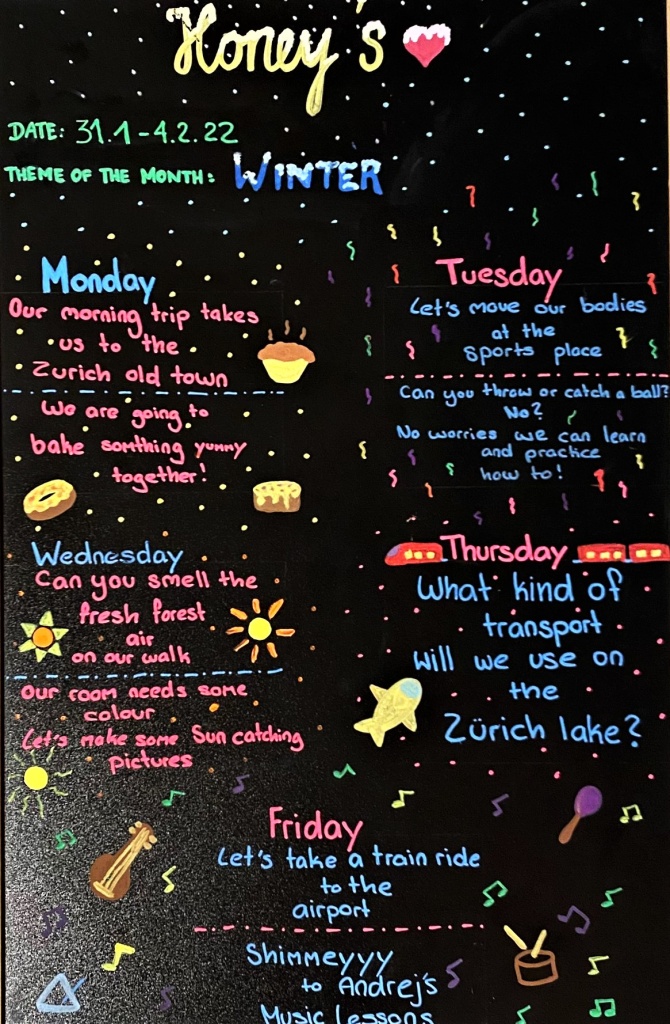 Honey's
DATE: 31.1-4.2.22
THEME OF THE MONTH: WINTER
Monday
Our morning trip takes
us to the
Zurich old town
We are going to
bake somthing yummy
together!
Tuesday
Let's move our bodies
at the
sports place
Can you throw or catch a ball?
No?
No worries we can learn
and practice
how to!
Wednesday
Can you smell the
fresh forest
air
on our walk
Our room needs some
colour
Let's make some Sun catching
pictures
Thursday
What kind of
transport
will we use on
the
Zürich lake?
Friday
Let's take a train ride
to the
airport
Shimmeyyy
to Andrej's
Music Lessons